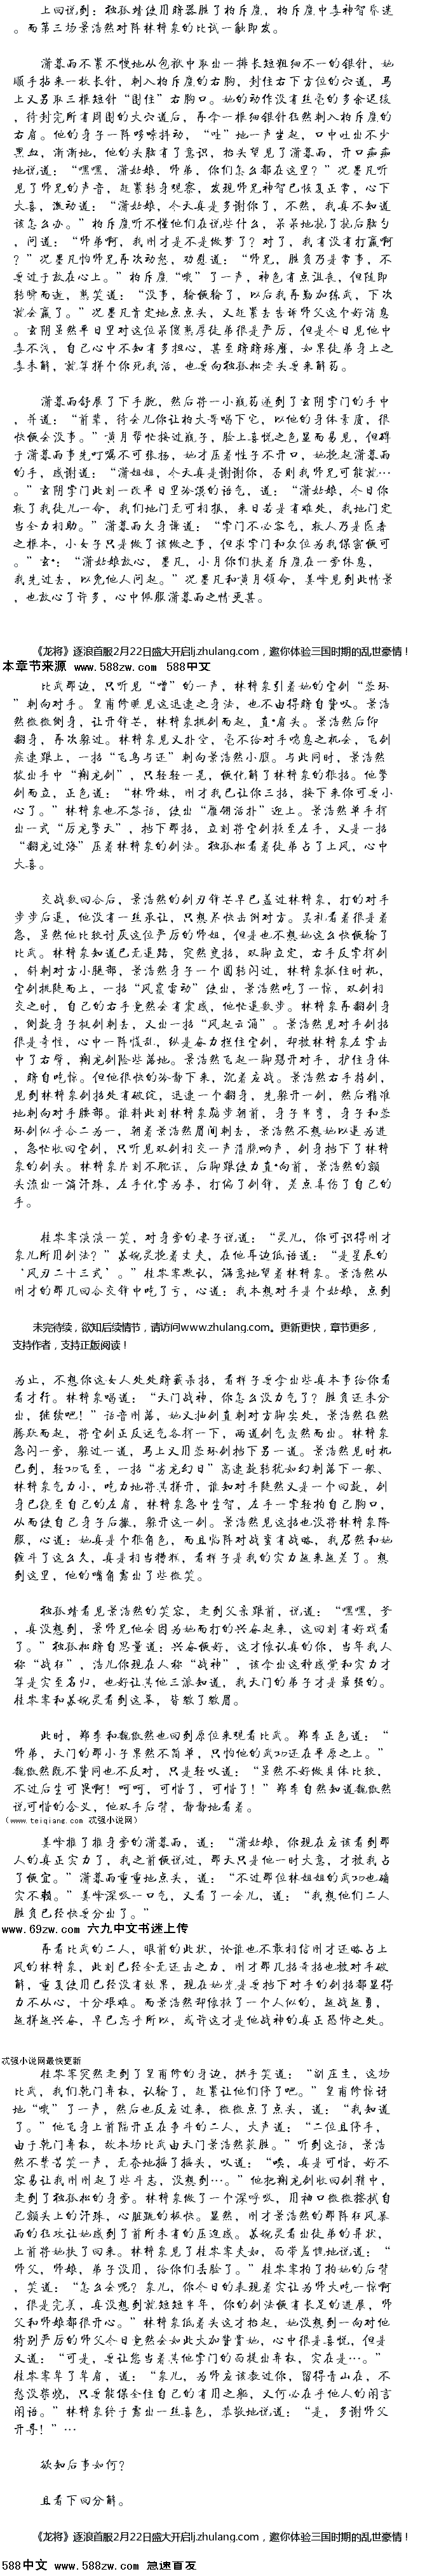 上回说到：独孤靖使用暗器胜了柏斥鹰，柏斥鹰中毒神智昏迷
。而第三场景浩然对阵林梓泉的比试一触即发。
潇暮雨不紧不慢地从包袱中取出一排长短粗细不一的银针，她
顺手拈来一枚长针，刺入柏斥鹰的右胸，封住右下方位的穴道，马
上又另取三根短针“围住”右胸口。她的动作没有丝毫的多余迟缓
，待封完所有周围的大穴道后，再拿一根细银针猛然刺入柏斥鹰的
右肩。他的身子一阵哆嗦抖动，“吐”地一声坐起，口中吐出不少
黑血，渐渐地，他的头脑有了意识，抬头望见了潇暮雨，开口痴痴
地说道：“嘿嘿，潇姑娘，师弟，你们怎么都在这里？”况墨凡听
见了师兄的声音，赶紧转身观察，发现师兄神智已恢复正常，心下
大喜，激动道：“潇姑娘，今天真是多谢你了，不然，我真不知道
该怎么办。”柏斥鹰听不懂他们在说些什么，呆呆地挠了挠后脑勺
，问道：“师弟啊，我刚才是不是做梦了？对了，我有没有打赢啊
？”况墨凡怕师兄再次动怒，劝慰道：“师兄，胜负乃是常事，不
要过于放在心上。”柏斥鹰“哦”了一声，神色有点沮丧，但随即
转瞬而逝，憨笑道：“没事，输便输了，以后我再勤加练武，下次
就会赢了。”况墨凡肯定地点点头，又赶紧去告诉师父这个好消息
。玄阴虽然平日里对这位呆傻憨厚徒弟很是严厉，但是今日见他中
毒不浅，自己心中不知有多担心，甚至暗暗琢磨，如果徒弟身上之
毒未解，就算拼个你死我活，也要向独孤松老头要来解药。
潇暮雨舒展了下手腕，然后将一小瓶药递到了玄阴掌门的手中
，并道：“前辈，待会儿你让柏大哥喝下它，以他的身体素质，很
快便会没事。”黄月帮忙接过瓶子，脸上喜悦之色显而易见，但碍
于潇暮雨事先叮嘱不可张扬，她才压着性子不开口，她挽起潇暮雨
的手，感谢道：“潇姐姐，今天真是谢谢你，否则我师兄可能就…
。”玄阴掌门此刻一改平日里冷漠的语气，道：“潇姑娘，今日你
救了我徒儿一命，我们地门无可相报，来日若是有难处，我地门定
当全力相助。”潇暮雨欠身谦道：“掌门不必客气，救人乃是医者
之根本，小女子只是做了该做之事，但求掌门和众位为我保密便可
。”玄阴：“潇姑娘放心，墨凡，小月你们扶着斥鹰在一旁休息，
我先过去，以免他人问起。”况墨凡和黄月领命，姜峰见到此情景
，也放心了许多，心中佩服潇暮雨之情更甚。
《龙将》逐浪首服2月22日盛大开启lj.zhulang.com，邀你体验三国时期的乱世豪情！
本章节来源 www.588zw.com 588中文
比武那边，只听见“噌”的一声，林梓泉引着她的宝剑“蕊环
”刺向对手。皇甫修瞧见这迅速之身法，也不由得暗自赞叹。景浩
然微微侧身，让开锋芒，林梓泉挑剑而起，直指肩头。景浩然后仰
翻身，再次躲过。林梓泉见又扑空，毫不给对手喘息之机会，飞剑
疾速跟上，一招“飞鸟与还”刺向景浩然小腹。与此同时，景浩然
拔出手中“翔龙剑”，只轻轻一晃，便化解了林梓泉的狠招。他擎
剑而立，正色道：“林师妹，刚才我已让你三招，接下来你可要小
心了。”林梓泉也不答话，使出“雁翎活扑”迎上。景浩然单手挥
出一式“历龙擎天”，挡下那招，立刻将宝剑换至左手，又是一招
“翻龙过海”压着林梓泉的剑法。独孤松看着徒弟占了上风，心中
大喜。
交战数回合后，景浩然的剑刃锋芒早已盖过林梓泉，打的对手
步步后退，他没有一丝承让，只想尽快击倒对方。吴礼看着很是着
急，虽然他比较讨厌这位严厉的师姐，但是也不想她这么快便输了
比武。林梓泉知道已无退路，突然变招，双脚立定，右手反掌挥剑
，斜刺对方小腿部，景浩然身子一个圆转闪过，林梓泉抓住时机，
宝剑挑陡而上，一招“风震雷动”使出，景浩然吃了一惊，双剑相
交之时，自己的右手竟然会有震感，他忙退数步。林梓泉再翻剑身
，倒旋身子挺剑刺去，又出一招“风起云涌”。景浩然见对手剑招
很是奇怪，心中一阵慌乱，纵是奋力挡住宝剑，却被林梓泉左掌击
中了右臂，翔龙剑险些落地。景浩然飞起一脚踢开对手，护住身体
，暗自吃惊。但他很快的冷静下来，沉着应战。景浩然右手持剑，
见到林梓泉剑招处有破绽，迅速一个翻身，先躲开一剑，然后精准
地刺向对手腰部。谁料此刻林梓泉踮步朝前，身子半弯，身子和蕊
环剑似乎合二为一，朝着景浩然眉间刺去，景浩然不想她以退为进
，急忙收回宝剑，只听见双剑相交一声清脆响声，剑身挡下了林梓
泉的剑头。林梓泉片刻不耽误，后脚跟使力直向前，景浩然的额
头流出一滴汗珠，左手化掌为拳，打偏了剑锋，差点真伤了自己的
手。
桂岑霄淡淡一笑，对身旁的妻子说道：“灵儿，你可识得刚才
泉儿所用剑法？”苏婉灵挽着丈夫，在他耳边低语道：“是星辰的
‘风刃二十三式’。”桂岑霄默认，满意地望着林梓泉。景浩然从
刚才的那几回合交锋中吃了亏，心道：我本想对手是个姑娘，点到
未完待续，欲知后续情节，请访问www.zhulang.com。更新更快，章节更多，
支持作者，支持正版阅读！
为止，不想你这女人处处暗藏杀招，看样子要拿出些真本事给你看
看才行。林梓泉喝道：“天门战神，你怎么没力气了？胜负还未分
出，继续吧！”话音刚落，她又抽剑直刺对方脚尖处，景浩然猛然
腾跃而起，将宝剑正反运气各挥一下，两道剑气轰然而出。林梓泉
急闪一旁，躲过一道，马上又用蕊环剑挡下另一道。景浩然见时机
已到，轻功飞至，一招“劣龙幻日”高速旋转犹如幻刺落下一般、
林梓泉气力小，吃力地将其拼开，谁知对手陡然又是一个回旋，剑
身已绕至自己的左肩，林梓泉急中生智，左手一掌轻拍自己胸口，
从而使自己身子后撤，躲开这一剑。景浩然见这招也没将林梓泉降
服，心道：她真是个狠角色，而且临阵对战蛮有战略，我居然和她
缠斗了这么久，真是相当糟糕，看样子是我的实力越来越差了。想
到这里，他的嘴角露出了些微笑。
独孤靖看见景浩然的笑容，走到父亲跟前，说道：“嘿嘿，爹
，真没想到，景师兄他会因为她而打的兴奋起来，这回到有好戏看
了。”独孤松暗自思量道：兴奋便好，这才像认真的你，当年我人
称“战狂”，浩儿你现在人称“战神”，该拿出这种感觉和实力才
算是实至名归，也好让其他三派知道，我天门的弟子才是最强的。
桂岑霄和苏婉灵看到这幕，皆皱了皱眉。
此时，郑季和魏傲然也回到原位来观看比武。郑季正色道：“
师弟，天门的那小子果然不简单，只怕他的武功还在平原之上。”
魏傲然既不赞同也不反对，只是轻叹道：“虽然不好做具体比较，
不过后生可畏啊！呵呵，可惜了，可惜了！”郑季自然知道魏傲然
说可惜的含义，他双手后背，静静地看着。
（www.teiqiang.com 忒强小说网）
姜峰推了推身旁的潇暮雨，道：“潇姑娘，你现在应该看到那
人的真正实力了，我之前便说过，那天只是他一时大意，才被我占
了便宜。”潇暮雨重重地点头，道：“不过那位林姐姐的武功也确
实不赖。”姜峰深吸一口气，又看了一会儿，道：“我想他们二人
胜负已经快要分出了。”
www.69zw.com 六九中文书迷上传
再看比武的二人，眼前的此状，论谁也不敢相信刚才还略占上
风的林梓泉，此刻已经全无还击之力，林刚才那几招奇招也被对手破
解，重复使用已经没有效果，现在她光是要挡下对手的剑招都显得
力不从心，十分艰难。而景浩然却像换了一个人似的，越战越勇，
越拼越兴奋，早已忘乎所以，或许这才是他战神的真正恐怖之处。
忒强小说网最快更新
桂岑霄突然走到了皇甫修的身边，拱手笑道：“副庄主，这场
比武，我们乾门弃权，认输了，赶紧让他们停了吧。”皇甫修惊讶
地“哦”了一声，然后也反应过来，微微点了点头，道：“我知道
了。”他飞身上前隔开正在争斗的二人，大声道：“二位且停手，
由于乾门弃权，故本场比武由天门景浩然获胜。”听到这话，景浩
然不禁苦笑一声，无奈地摇了摇头，叹道：“唉，真是可惜，好不
容易让我刚刚起了些斗志，没想到…。”他把翔龙剑收回剑鞘中，
走到了独孤松的身旁。林梓泉做了一个深呼吸，用袖口微微擦拭自
己额头上的汗珠，心脏跳的极快。显然，刚才景浩然的那阵狂风暴
雨的狂攻让她感到了前所未有的压迫感。苏婉灵看出徒弟的异状，
上前将她扶了回来。林梓泉见了桂岑霄夫妇，面带羞愧地说道：“
师父，师娘，弟子没用，给你们丢脸了。”桂岑霄拍了拍她的后背
，笑道：“怎么会呢？泉儿，你今日的表现着实让为师大吃一惊啊
，很是完美，真没想到就短短半年，你的剑法便有长足的进展，师
父和师娘都很开心。”林梓泉低着头这才抬起，她没想到一向对他
特别严厉的师父今日竟然会如此大加赞赏她，心中很是喜悦，但是
又道：“可是，要让您当着其他掌门的面提出弃权，实在是…。”
桂岑霄耸了耸肩，道：“泉儿，为师应该教过你，留得青山在，不
愁没柴烧，只要能保全住自己的有用之躯，又何必在乎他人的闲言
闲语。”林梓泉终于露出一丝喜色，恭敬地说道：“是，多谢师父
开导！”…
欲知后事如何？
且看下回分解。
《龙将》逐浪首服2月22日盛大开启lj.zhulang.com，邀你体验三国时期的乱世豪情！
588中文 www.588zw.com 急速首发